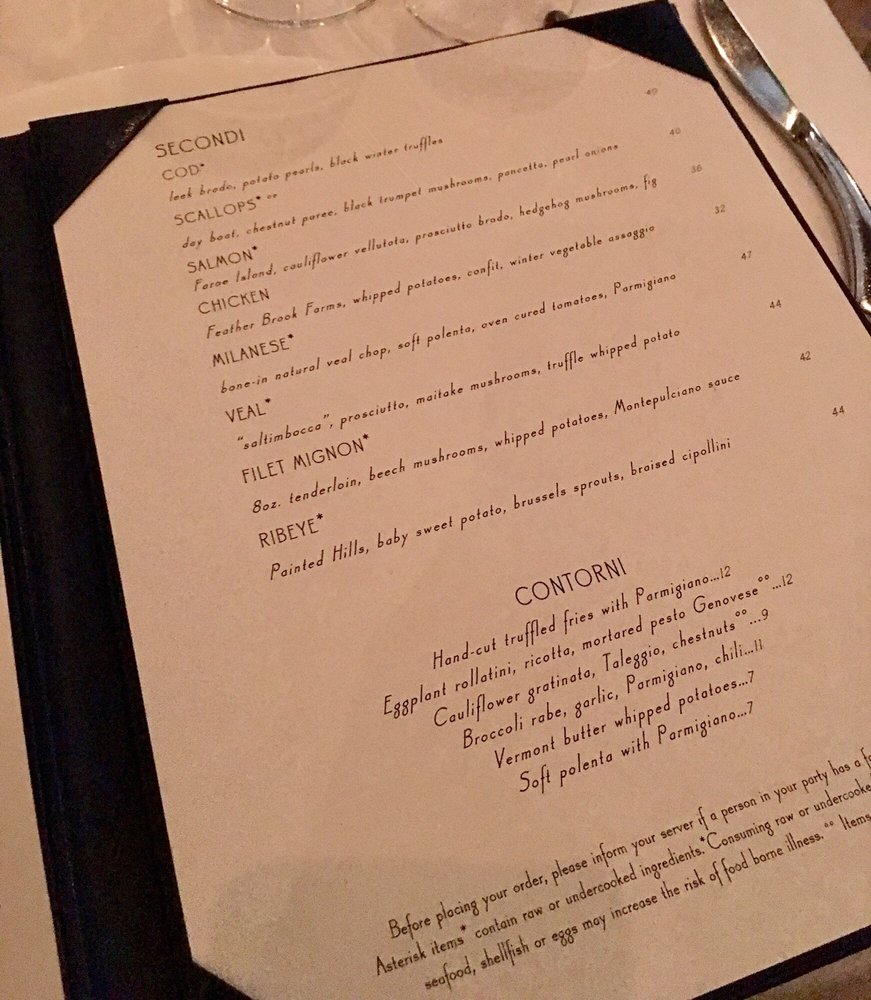 SECONDI
COD*
leek brodo, potato pearls, black winter truffles
SCALLOPS* °° 40
day boat, chestnut puree, black trumpet mushrooms, pancetta, pearl onions
SALMON* 36
Faroe Island, cauliflower vellutata, prosciutto brodo, hedgehog mushrooms, fig
CHICKEN 32
Feather Brook Farms, whipped potatoes, confit, winter vegetable assaggio
MILANESE* 47
bone-in natural veal chop, soft polenta, oven cured tomatoes, Parmigiano
VEAL* 44
"saltimbocca", prosciutto, maitake mushrooms, truffle whipped potato
FILET MIGNON* 42
8oz. tenderloin, beech mushrooms, whipped potatoes, Montepulciano sauce
RIBEYE* 44
Painted Hills, baby sweet potato, brussels sprouts, braised cipollini
CONTORNI
Hand-cut truffled fries with Parmigiano...12
Eggplant rollatini, ricotta, mortared pesto Genovese°°...12
Cauliflower gratinata, Taleggio, chestnuts°°...9
Broccoli rabe, garlic, Parmigiano, chili...11
Vermont butter whipped potatoes...7
Soft polenta with Parmigiano...7
Before placing your order, please inform your server if a person in your party has a
Asterisk items* contain raw or undercooked ingredients.*Consuming raw or undercooked
seafood, shellfish or eggs may increase the risk of food borne illness.°° Items